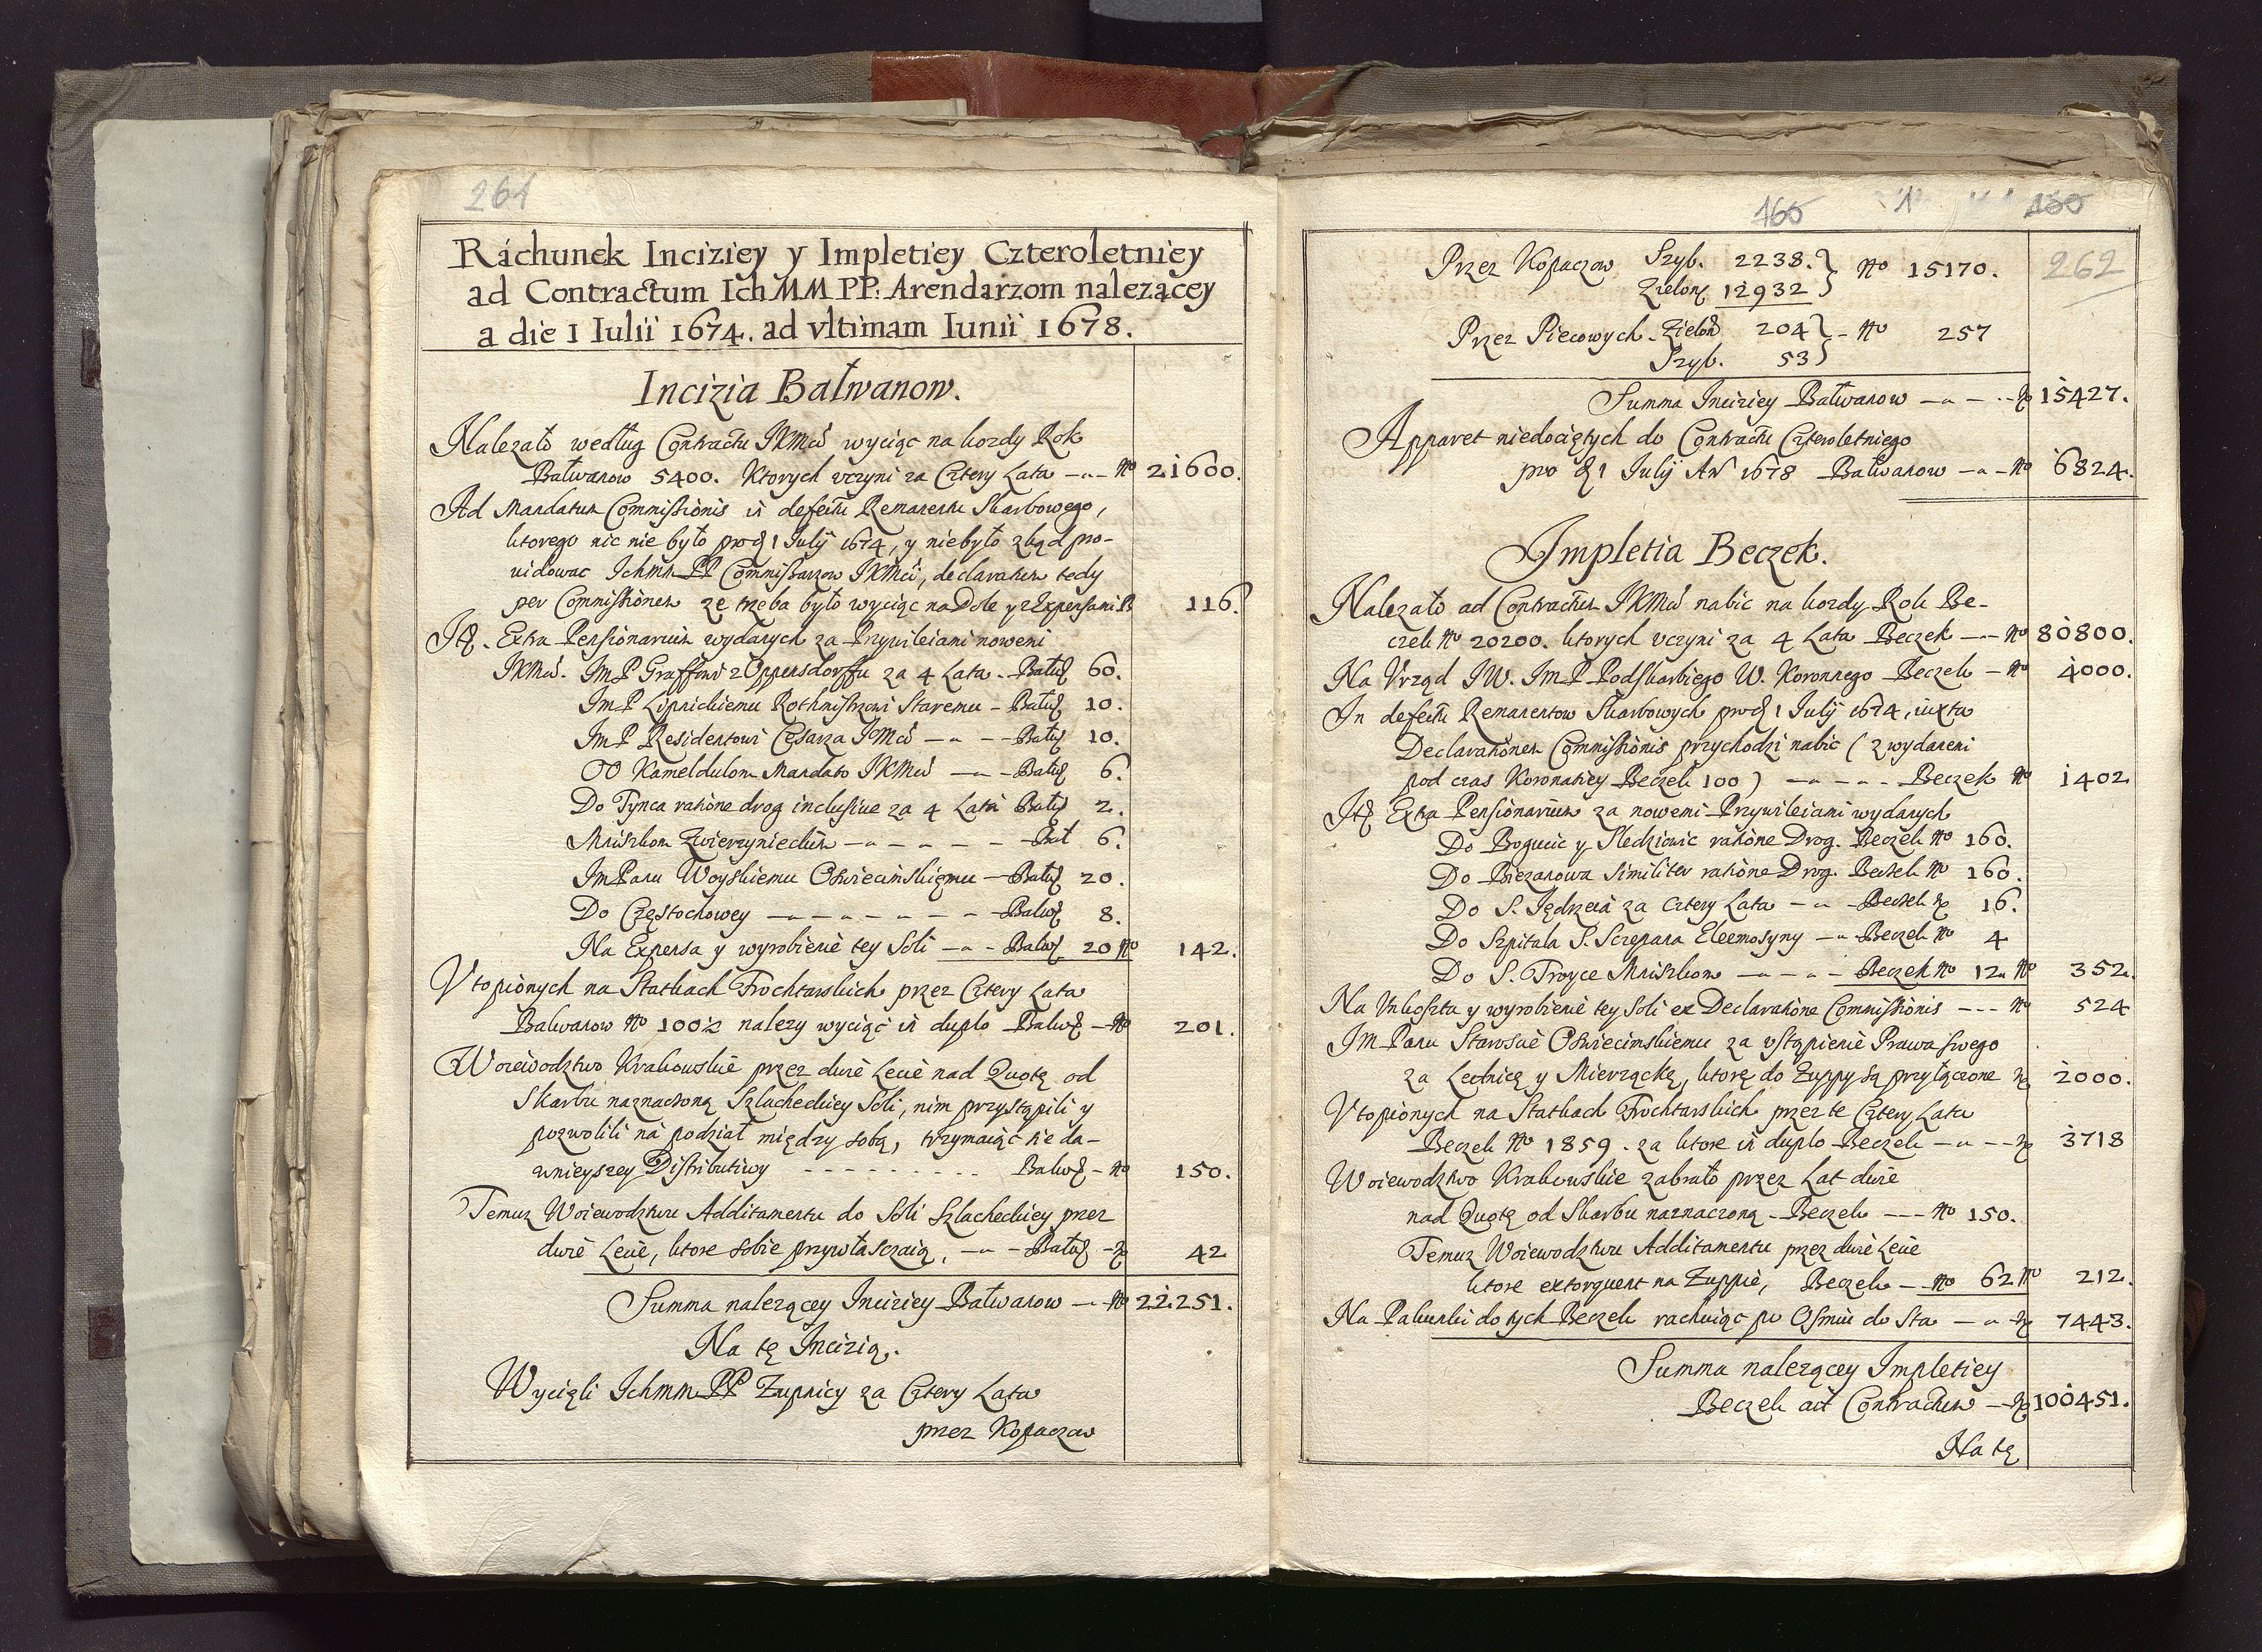 261
Ráchunek Inciziey y Impletiey Czteroletniey
ad Contractum Ich MM PP: Arendarzom nalezącey
a die 1 Iulii 1674. ad vltimam Iunii 1678.
Incizia Bałwanow.
Nalezało według Contractu JKMći wyciąc na kozdy Rok
Bałwanow 5400. Ktorych vczyni za Cztery Lata — No 21600.
Ad Mandatum Commissionis in defectu Remanentu Skarbowego,
ktorego nic nie było pro die 1 July 1674, y niebyło zkąd pro-
uidowac Ichmm PP Commissarzow JKMći, declaratum tedy
per Commissionem ze trzeba było wyciąc na Dole y z Expensami B 116.
Itē. Extra Pensionarium wydanych za Przywileiami nowemi
JKMći. JmP Graffowi z Oppersdorffu za 4 Lata. Bałwē 60.
JmP Lipnickiemu Rothmistrzowi Staremu – Bałwē 10.
JmP Residentowi Cesarza JeMći — Bałwē 10.
OO Kameldulom Mandato JKMći — Bałwē 6.
Do Tynca ratione drog inclusiue za 4 Lata Bałwē 2.
Mniszkom Zwierzynieckim — Bał 6.
JmPanu Woyskiemu Oswiecimskiemu — Bałwē 20.
Do Częstochowey — Bałwē 8.
Na Expensa y wyrobienie tey Soli — Bałwē 20 No 142.
Vtopionych na Statkach Frochtarskich przez Cztery Lata
Balwanow No 100½ nalezy wyciąć in duplo Balwē — No 201.
Woiewodztwo Krakowskie przez dwie Lecie nad Quotę od
Skarbu naznaczoną Szlacheckiey Soli, nim przystąpili y
pozwolili na podział między sobą, trzymaiąc sie da-
wnieyszey Distributiwy - - - - Balwē – No 150.
Temuz Woiewodztwu Additamentu do Soli Szlacheckiey przez
dwie Lecie, ktore sobie przywłasczaią, — Bałwē – No 42
Summa nalezącey Inciziey Bałwanow — No 22251.
Na tę Incizią.
Wycięli Ichmm PP Zupnicy za Cztery Lata
przez Kopaczow
165
1
262
Przez Kopaczow Szyb. 2238. } No 15170.
Zielonē 12932
Przez Piecowych. Zielonē 204 } – No 257
Szyb. 53
Summa Inciziey Bałwanow — No 15427.
Apparet niedociętych do Contractu Czteroletniego
pro die 1 July Ao 1678 Bałwanow — No 6824.
Impletia Beczek.
Nalezało ad Contractum JKMći nabic na kozdy Rok Be-
czek No 20200. ktorych vczyni za 4 Lata Beczek — No 80800.
Na Vrząd JW. JmP Podskarbiego W. Koronnego Beczek – No 4000.
In defectu Remanentow Skarbowych pro die 1 July 1674, iuxta
Declarationem Commissionis przychodzi nabic (z wydanemi
pod czas Koronatiey Beczek 100) — Beczek No 1402
Itē Extra Pensionarium za nowemi Przywileiami wydanych
Do Bogucic y Sledziowic ratione Drog. Beczek No 160.
Do Biezanowa Similiter ratione Drog. Beczek No 160.
Do S. Jędrzeia za Cztery Lata — Beczek No 16.
Do Szpitala S. Sczepana Eleemosyny — Beczek No 4
Do S. Troyce Mniszkom — Beczek No 12 No 352.
Na Vnkoszta y wyrobienie tey Soli ex Declaratione Commissionis — No 524
JmPanu Staroscie Oswiecimskiemu za vstąpienie Prawa swego
za Lednicę y Mierzączkę, ktore do Zuppy są przyłączone No 2000.
Vtopionych na Statkach Frochtarskich przez te Cztery Lata
Beczek No 1859. za ktore in duplo Beczek — No 3718
Woiewodztwo Krakowskie zabrało przez Lat dwie
nad Quotę od Skarbu naznaczoną – Beczek — No 150.
Temuz Woiewodztwu Additamentu przez dwie Lecie
ktore extorquent na Zuppie, Beczek — No 62 No 212.
Na Pakunki do tych Beczek rachuiąc po Osmiu do Sta — No 7443.
Summa nalezącey Impletiey
Beczek ad Contractum — No 100451.
Na tę